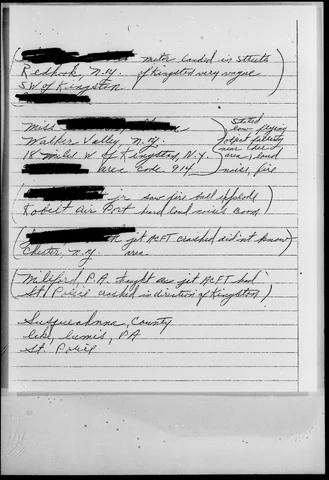 meteor landed in Streets
Redhook, N.Y. of Kingston very vague
SW of Kingston
Miss
Walker Valley, N.Y.
18 miles W of Kingston, N.Y.
area code 914
Stated
low flying
object
near their
area, loud
noise, fire
jr saw fire ball explode
Kobelt Air Port heard loud noise & Boom
jet ACFT crashed didn't know
Chester, N.Y. area
Milford, P.A. thought a jet ACFT had
St. Police crashed in direction of Kingston
Susqueahnna, County.
PA
St. Police